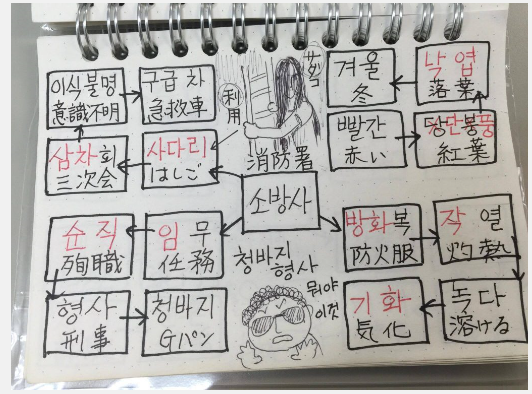 이식불명
意識不明
구급차
急救車
싸악
利用
겨울
冬
낙엽
落葉
삼차회
三次会
사다리
はしご
消防署
빨간
赤い
당단붕풍
紅葉
소방사
순직
殉職
임무
任務
청바지
형사
방화복
防火服
작열
灼熱
형사
刑事
청바지
Gパン
뭐야
이것
기화
気化
녹다
溶ける